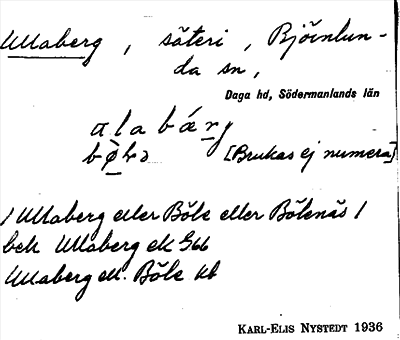 Ullaberg, säteri, Björnlun-
da sn,
Daga hd, Södermanlands län
alabärj
bø̀lə [Brukas ej numera]
/ Ullaberg eller Böle eller Bölenäs /
beh Ullaberg ek G66
Ullaberg ell. Böle kb
KARL-ELIS NYSTEDT 1936